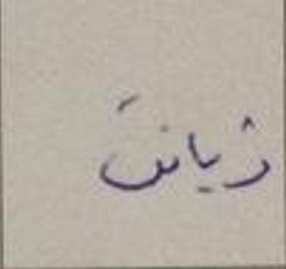 ژیانی